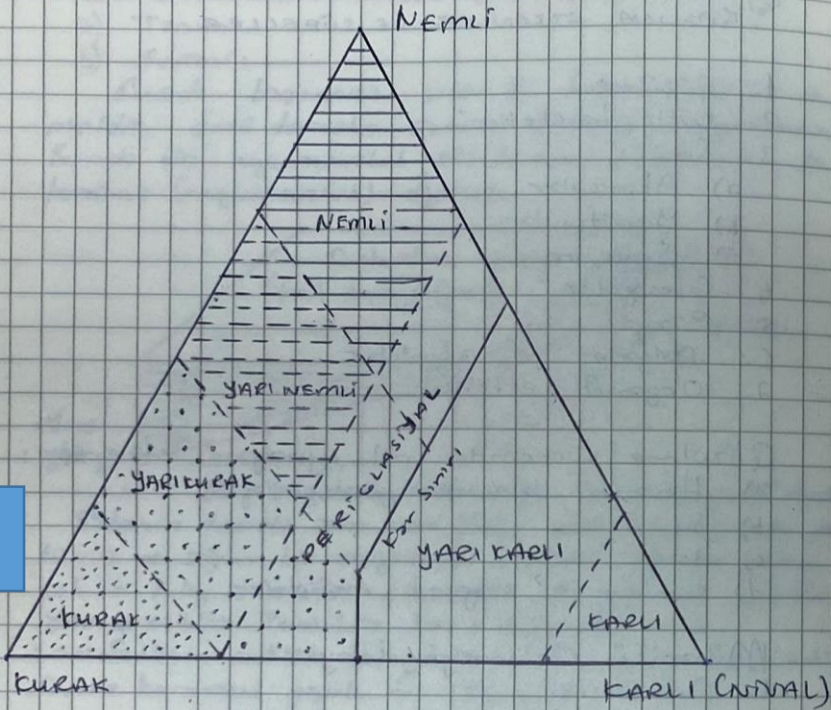 NEMLİ
NEMLİ
YARI NEMLİ
YARIKURAK
PERİGLASİYAL
Kar Sınırı
YARI KARLI
KURAK
KARLI
KURAK
KARLI (NİVAL)